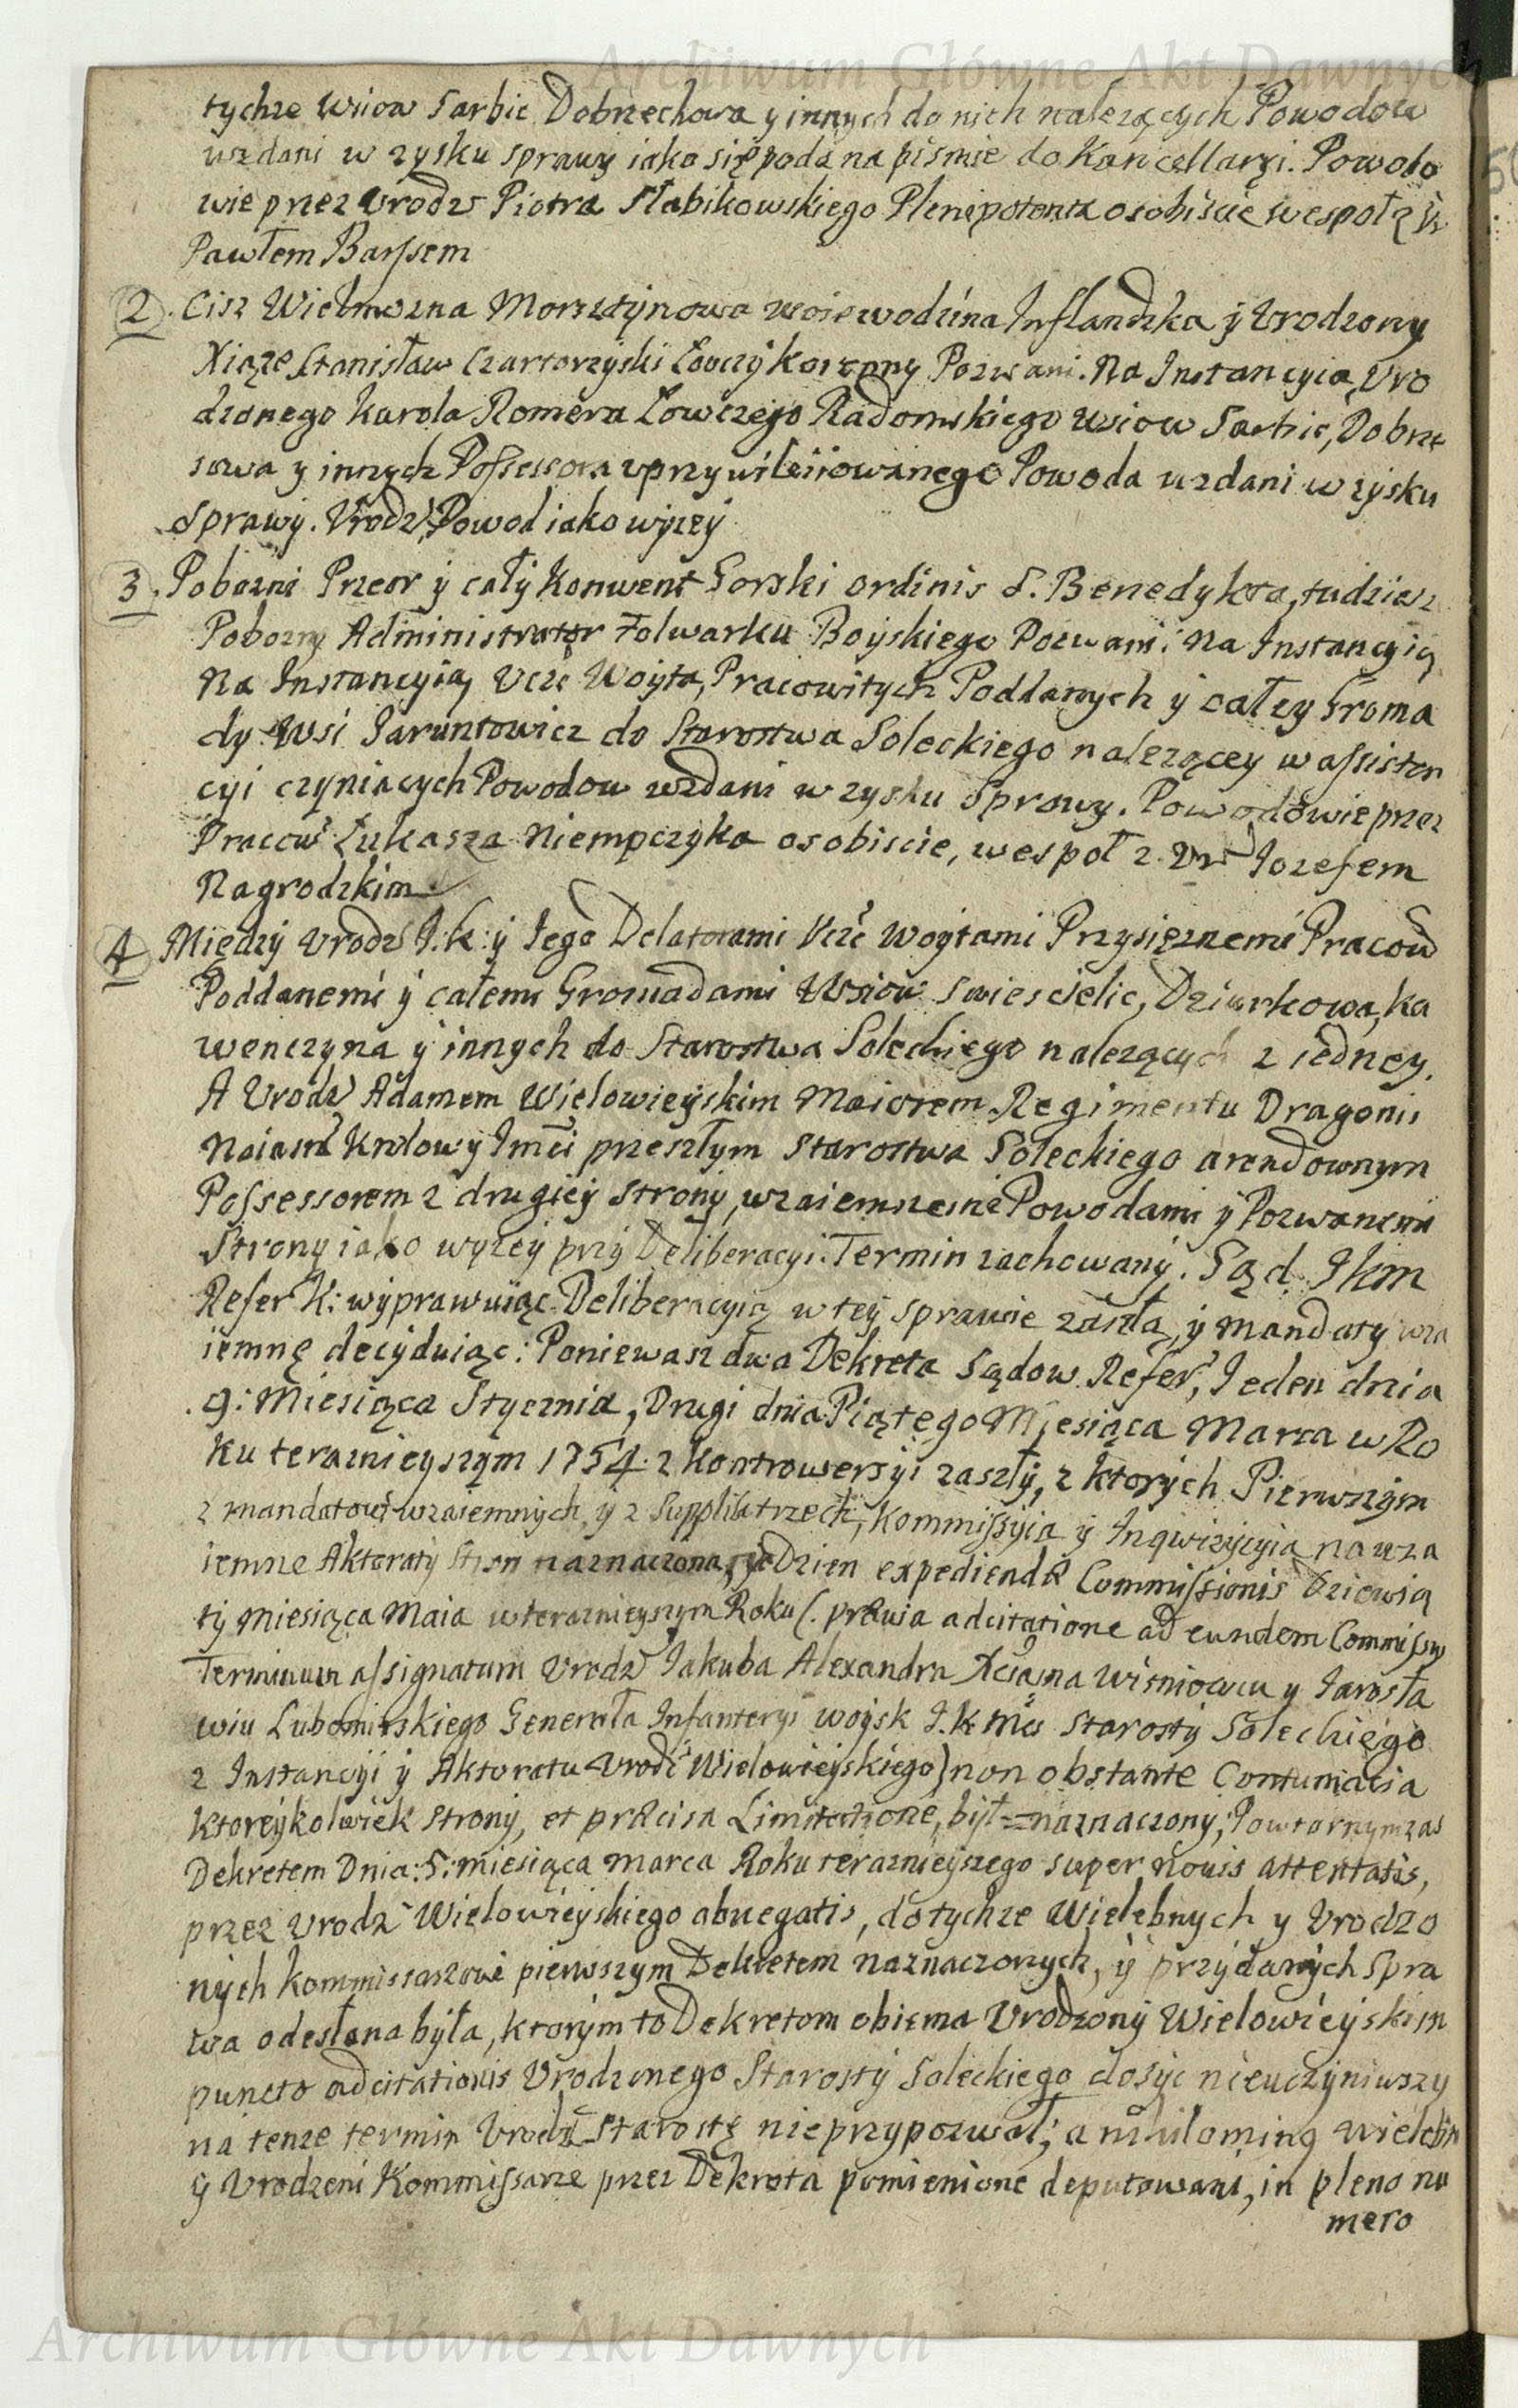 Archiwum Główne Akt Dawnych
tychze Wsiow Sarbic Dobrzechowa y innych do nich nalezących Powodow
wzdani w zysku sprawy iako się poda na pismie do Kancellaryi. Powodo
wie przez Vrodz Piotra Słabikowskiego Plenipotenta osobiscie wespoł z Vr
Pawłem Barssem
2. Ciż Wielmozna Morsztynowa Woiewodzina Inflandzka y Vrodzony
Xiąze Stanisław Czartoryski Łowczy Koronny Pozwani. Na Instancyią Vro
dzonego Karola Romera Łowczego Radomskiego Wsiow Sarbic, Dobrze
sowa y innych Possessora vprzywileiiowanego Powoda wzdani w zysku
Sprawy. Vrodz Powod iako wyzey
3. Pobozni Przeor y cały Konwent Gorski ordinis S. Benedykta, tudziesz
Pobozny Administrator Folwarku Boyskiego Pozwani. Na Instancyią
Na Instancyią Vczc Woyta, Pracowitych Poddanych y całey Groma
dy Wsi Jaruntowicz do Starostwa Soleckiego nalezącey w assisten
cyi czyniących Powodow wzdani w zysku Sprawy. Powodowie przez
Pracow Łukasza Niempczyka osobiscie, wespoł z Vr Iozefem
Nagrodzkim
4 Między Vrodz I. K. y Iego Delatorami Vczc Woytami Przysięznemi Pracow
Poddanemi y całemi Gromadami Wsiow Swiescielic, Dziurkowa, Ka
wenczyna y innych do Starostwa Soleckiego nalezących z iedney.
A Vrodz Adamem Wielowieyskim Maiorem Regimentu Dragonii
Naiasn Krolowy Imci przeszłym Starostwa Soleckiego arendownym
Possessorem z drugiey strony, wzaiemnemi Powodami y Pozwanemi
Strony iako wyzey przy Deliberacyi. Termin zachowany. Sąd Ikm
Refer K: wyprawuiąc Deliberacyią w tey sprawie zaszłą, y mandaty wza
iemnę decyduiąc: Poniewasz dwa Dekreta Sądow Refer, Ieden dnia
9: Miesiąca Stycznia, Drugi dnia Piątego Miesiąca Marca w Ro
ku teraznieyszym 1754. z Kontrowersyi zaszły, z ktorych Pierwszym
z mandatow wzaiemnych y z Supplik trzech, Kommissyia y Inqwizycyia na wza
iemne Aktoraty Stron naznaczona, y Dzien expediendæ Commissionis Dziewią
ty Miesiąca Maia w teraznieyszym Roku (. prævia adcitatione ad eundem Commissyi
Terminum assignatum Vrodz Iakuba Alexandra Xcia na Wisniowcu y Iarosła
wiu Lubomirskiego Generała Infanteryi woysk I. K Mci Starosty Soleckiego
z Instancyi y Aktoratu Vrodz Wielowieyskiego) non obstante Contumacia
ktoreykolwiek strony, et præcisa Limitatione, był naznaczony; Powtornym zas
Dekretem Dnia: 5: miesiąca marca Roku teraznieyszego super nouis attentatis,
przez Vrodz Wielowieyskiego abnegatis, do tychze Wielebnych y Vrodzo
nych Kommissarzow pierwszym Dekretem naznaczonych, y przydanych spra
wa odesłana była, ktorym to Dekretom obiema Vrodzony Wielowieyski in
puncto adcitationis Vrodzonego Starosty Soleckiego dosyc nieuczyniwszy
na tenze termin Vrodz Starostę nieprzypozwał; a nihilominą wielebni
y Vrodzeni Kommissarze przez Dekreta pomienione deputowani, in pleno nu
mero
Archiwum Główne Akt Dawnych